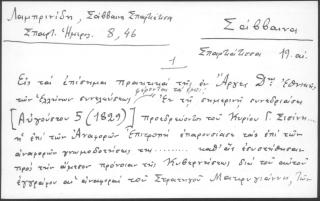 Λαμπρινίδη, Σάββαινα Σπαρτιάτισσα
Σπαρτ. Ἡμερ. 8, 46
Σάββαινα
Σπαρτιάτισσα 19. αἰ.
1
Εἰς τὰ ἐπίσημα πρακτικὰ τῆς ἐν Ἄργει Δης Ἐθνικῆς
τῶν Ἑλλήνων συνελεύσεως φέρονται τὰ ἑξῆς: Ἐν τῇ σημερινῇ συνεδριάσει
[Αὐγούστου 5 (1829)] προεδρεύοντος τοῦ Κυρίου Γ. Σισίνη...
ἡ ἐπὶ τῶν Ἀναφορῶν Ἐπιτροπὴ ἐπαρουσίασε τὰς ἐπὶ τῶν
ἀναφορῶν γνωμοδοτήσεις της ......... καθ' ἃς ἐσυστήθησαν
πρὸς τὴν ἄμεσον πρόνοιαν τῆς Κυβερνήσεως διὰ τοῦ αὐτοῦ
ἐγγράφου αἱ ἀναφοραὶ τοῦ Στρατηγοῦ Μακρυγιάννη, τῶν